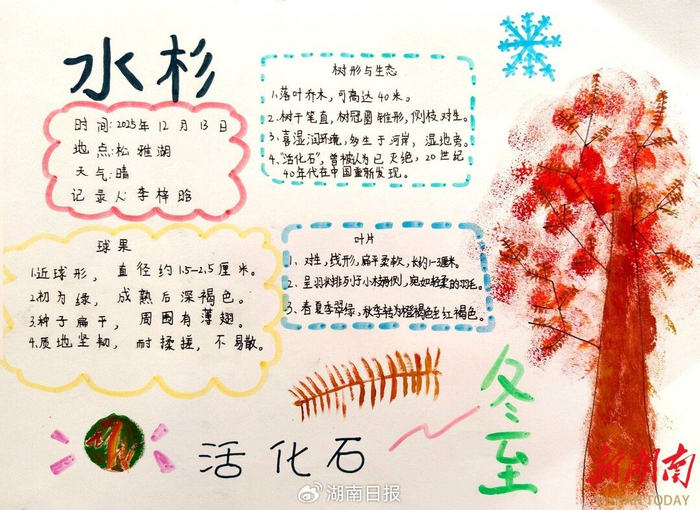 水杉
时间:2025年12月13日
地点:松雅湖
天气:晴
记录人:李梓晗
树形与生态
1、落叶乔木,可高达40米。
2、树干笔直,树冠圆锥形,侧枝对生。
3、喜湿润环境,多生于河岸,湿地旁。
4、“活化石”,曾被认为已灭绝,20世纪
40年代在中国重新发现。
球果
1.近球形,直径约1.5-2.5厘米。
2.初为绿,成熟后深褐色。
3.种子扁平,周围有薄翅。
4.质地坚韧,耐揉搓,不易散。
叶片
1、对生,线形,扁平柔软,长约1-3厘米。
2、呈羽状排列于小枝两侧,宛如轻柔的羽毛。
3、春夏季翠绿,秋季转为橙褐色至红褐色。
活化石
冬至
湖南日报
新湖南
HUNAN TODAY